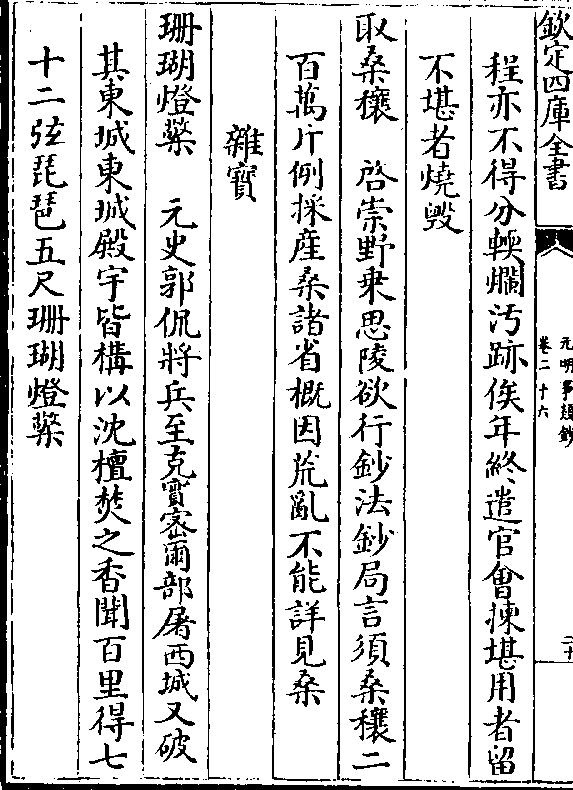 欽定四庫全書
元明事類鈔
卷二十六
二十
程亦不得分輭爛汚跡俟年終遣官會揀堪用者留
不堪者燒毀
取桑穰　啓崇野乗思陵欲行鈔法鈔局言須桑穰二
百萬斤例採産桑諸省概因荒亂不能詳見桑
雜寳
珊瑚燈檠　元史郭侃將兵至克實密爾部屠西城又破
其東城東城殿宇皆構以沈檀焚之香聞百里得七
十二弦琵琶五尺珊瑚燈檠